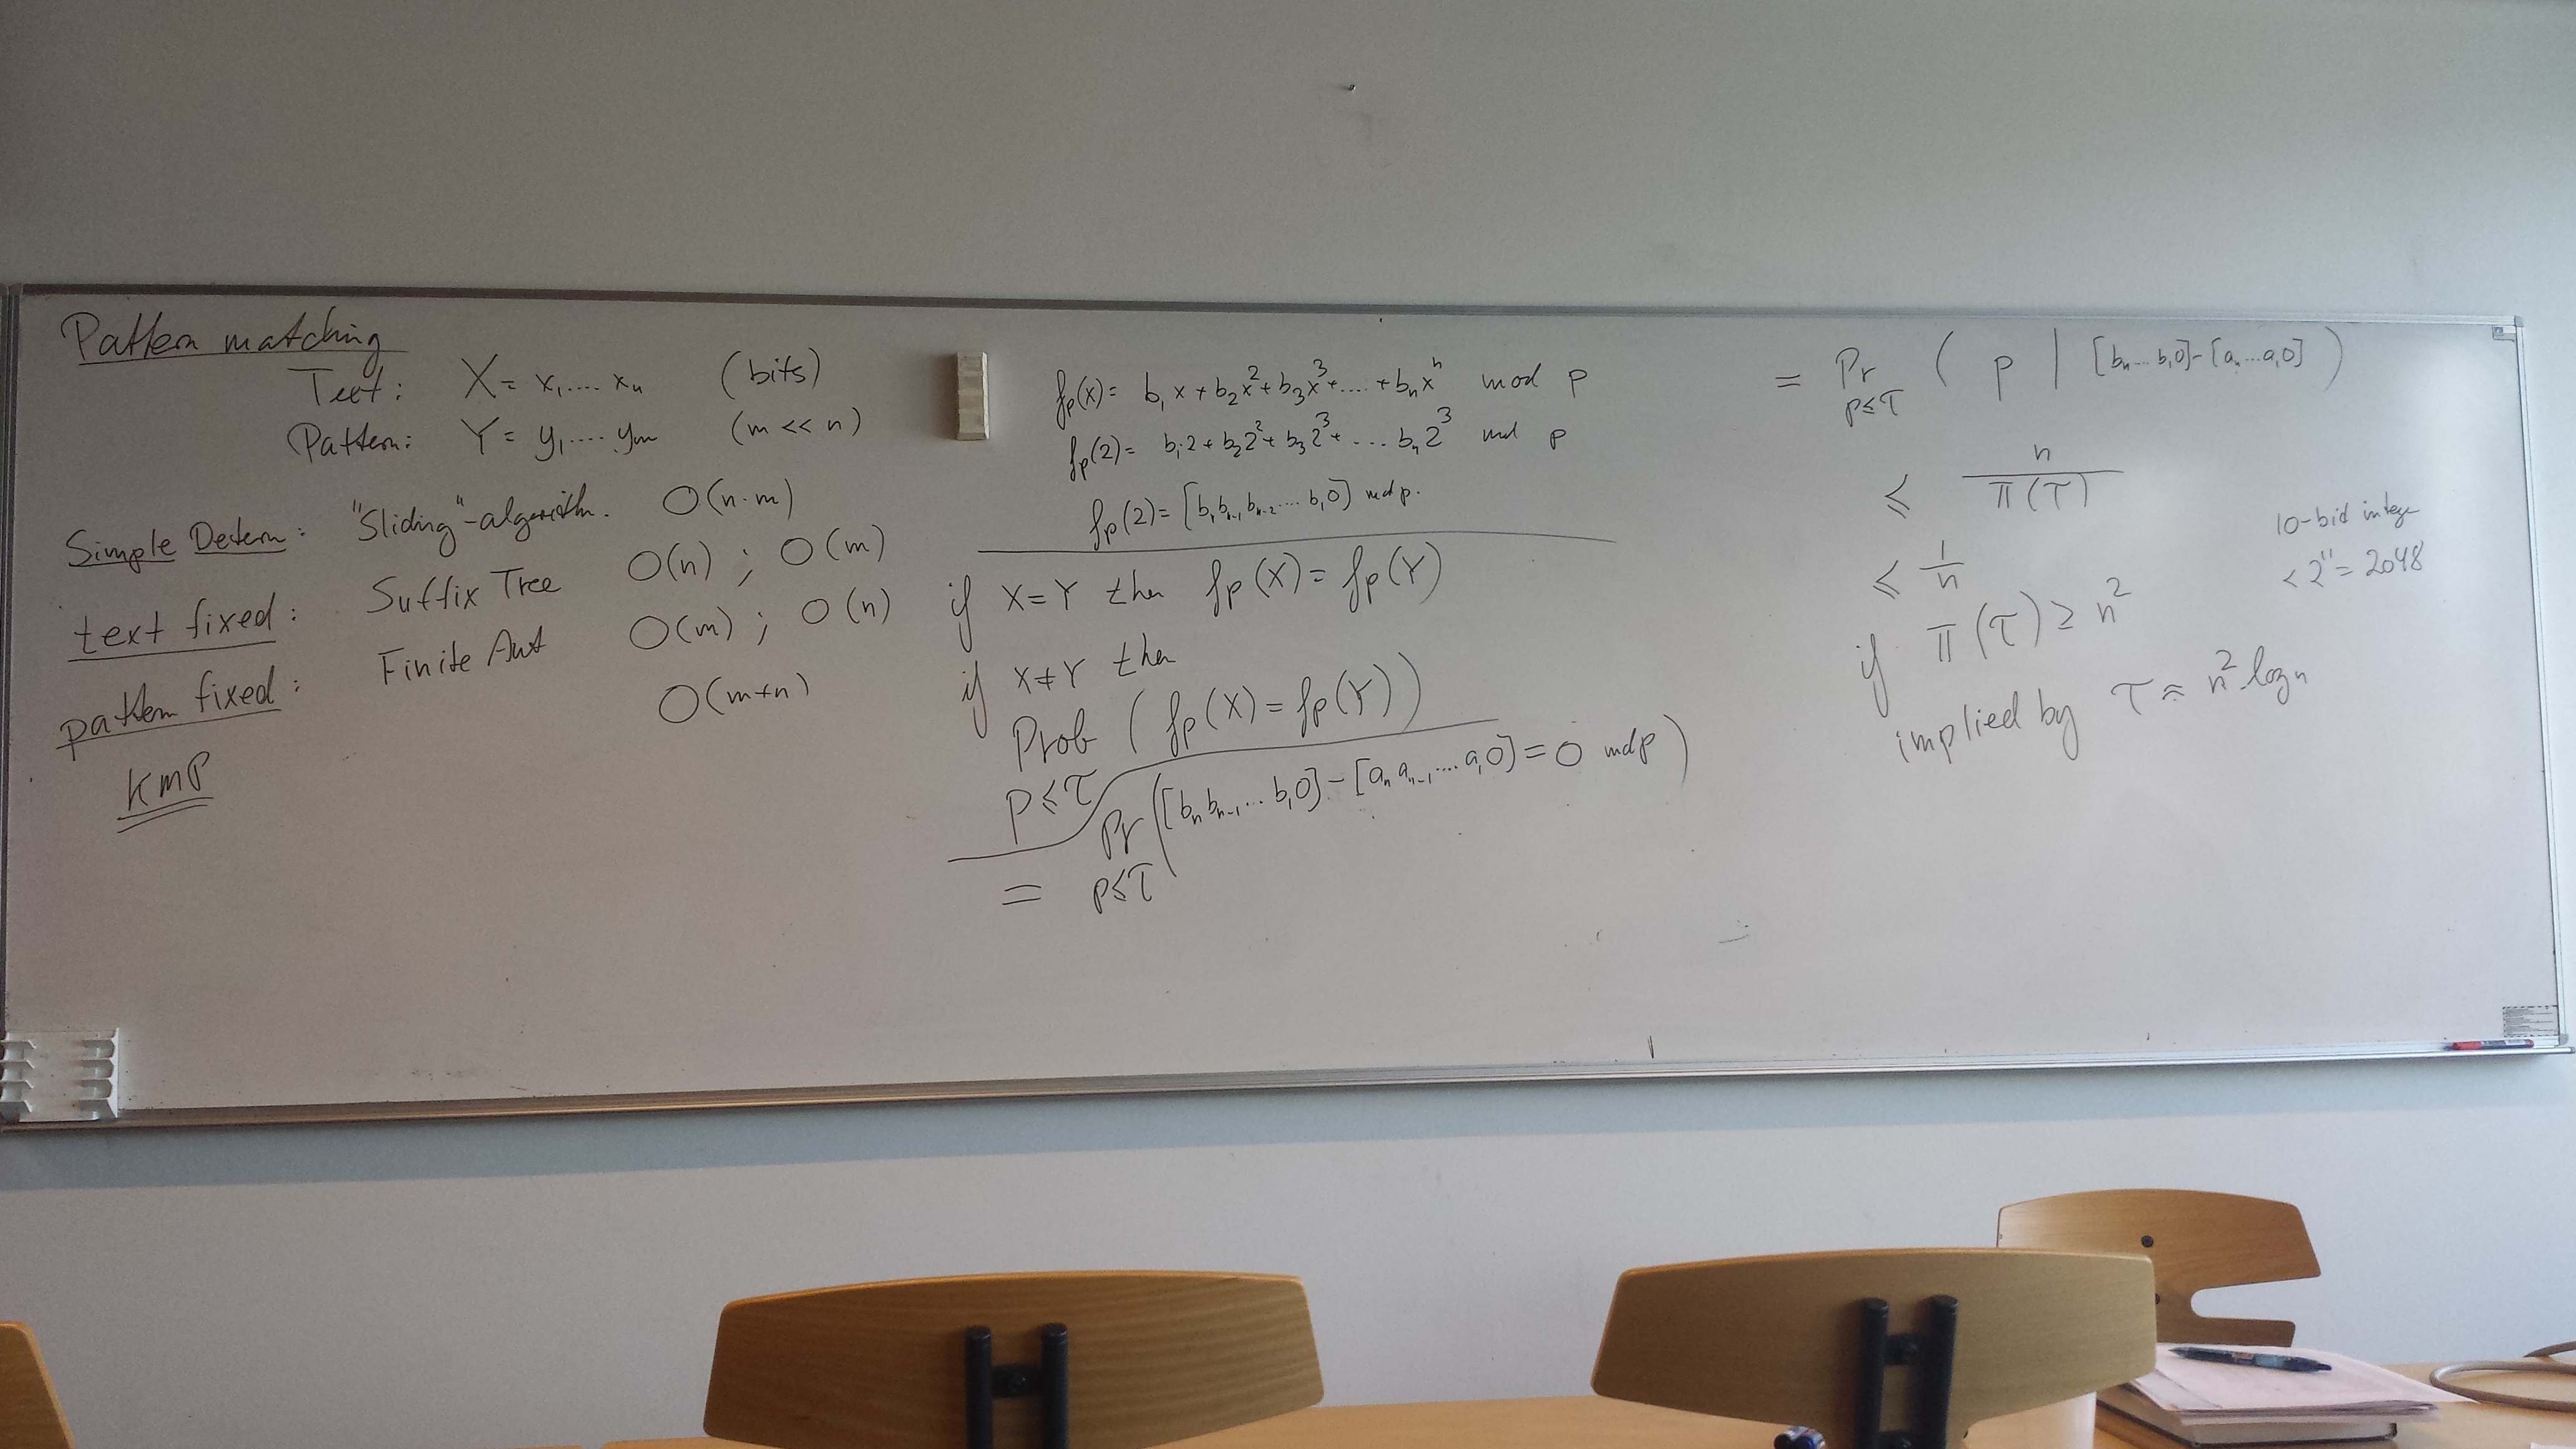 Pattern matching
Text: X = x₁.... xₙ (bits)
Pattern: Y = y₁.... yₘ (m << n)
Simple Determ: "Sliding"-algorith. O(n·m)
text fixed: Suffix Tree O(n) ; O(m)
pattern fixed: Finite Aut O(m) ; O(n)
KMP O(m+n)
fₚ(x) = b₁x + b₂x² + b₃x³ + .... + bₙxⁿ mod p
fₚ(2) = b₁2 + b₂2² + b₃2³ + ... bₙ2³ md p
fₚ(2) = [bₙbₙ₋₁bₙ₋₂.... b₁0] md p.
if X = Y then fₚ(X) = fₚ(Y)
if X ≠ Y then
Prob ( fₚ(X) = fₚ(Y) )
p ≤ τ
= Pr ( [bₙbₙ₋₁... b₁0] - [aₙaₙ₋₁.... a₁0] = 0 md p )
p ≤ τ
= Pr ( p | [bₙ... b₁0] - [aₙ...a₁0] )
p ≤ τ
≤ n / π(τ)
≤ 1/n
if π(τ) ≥ n²
implied by τ ≈ n²·log n
10-bid intege
< 2¹¹ = 2048